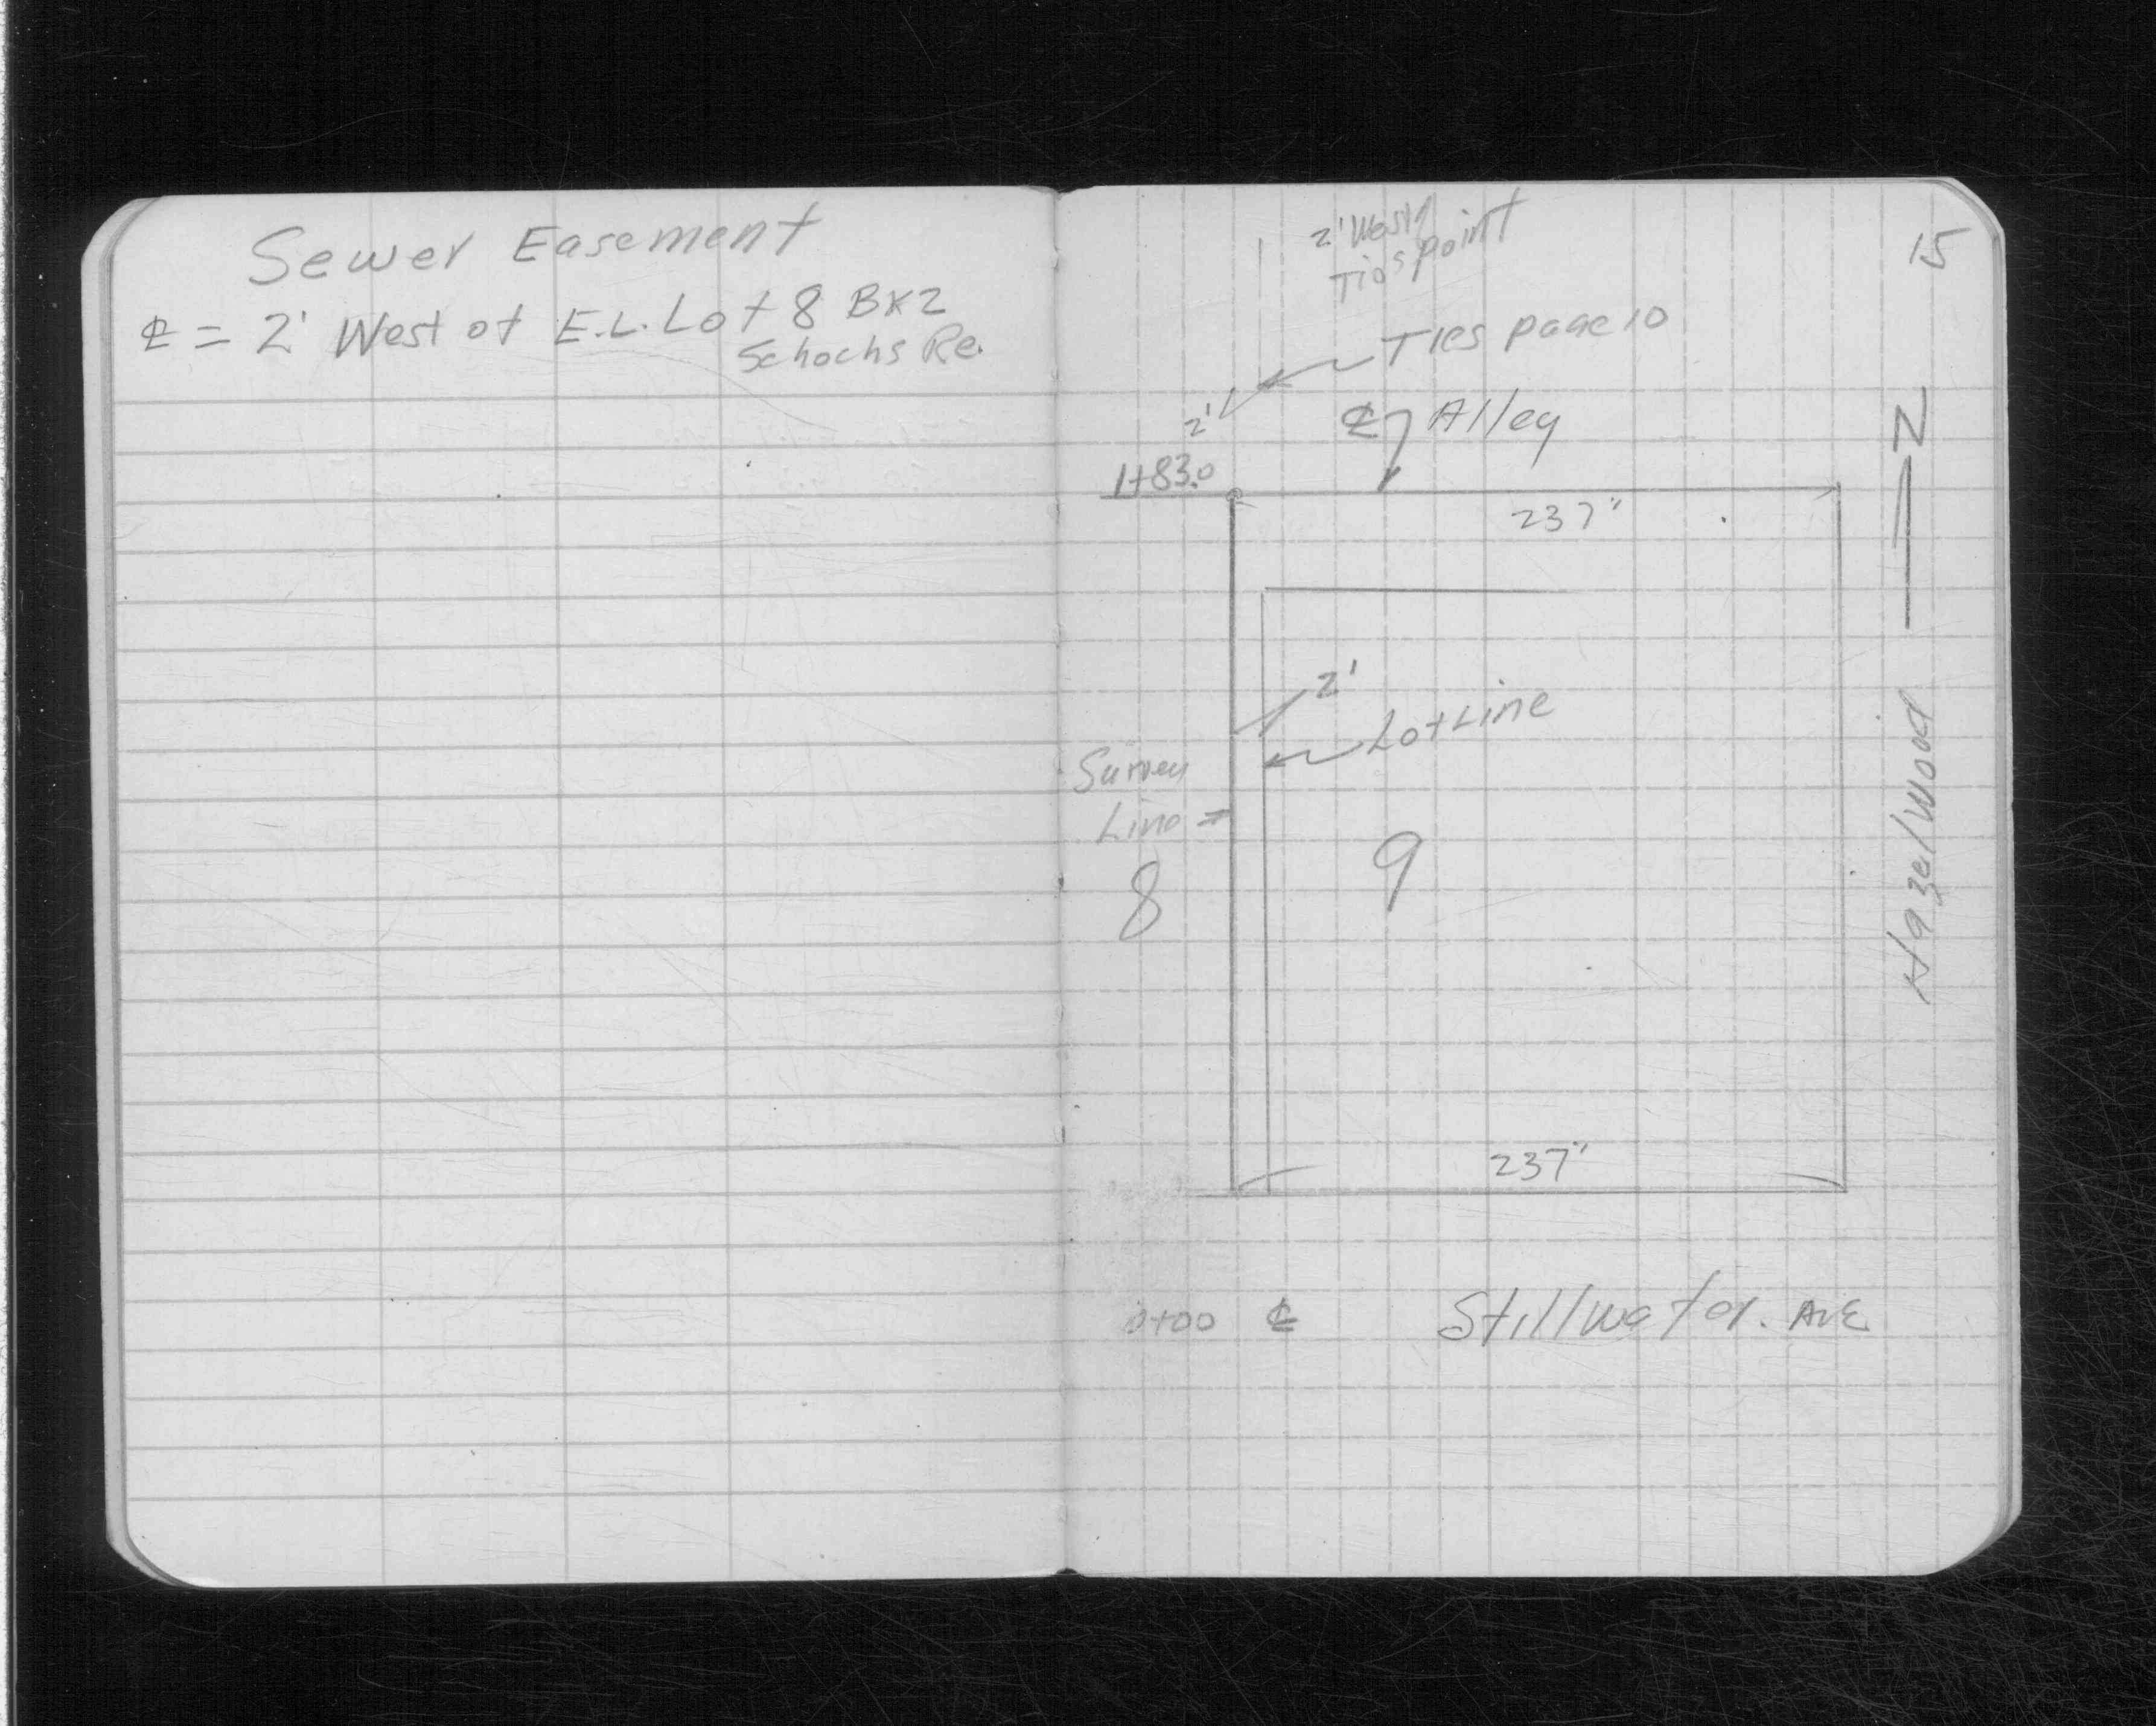 Sewer Easement
℄ = 2' West of E.L. Lot 8 BK2
Schochs Re.
15
2' West
Ties point
Ties page 10
2'
℄ Alley
1+83.0
237'
N
2'
Lot Line
Survey
Line
8
9
Hazelwood
237'
0+00 ℄
Stillwater. AVE